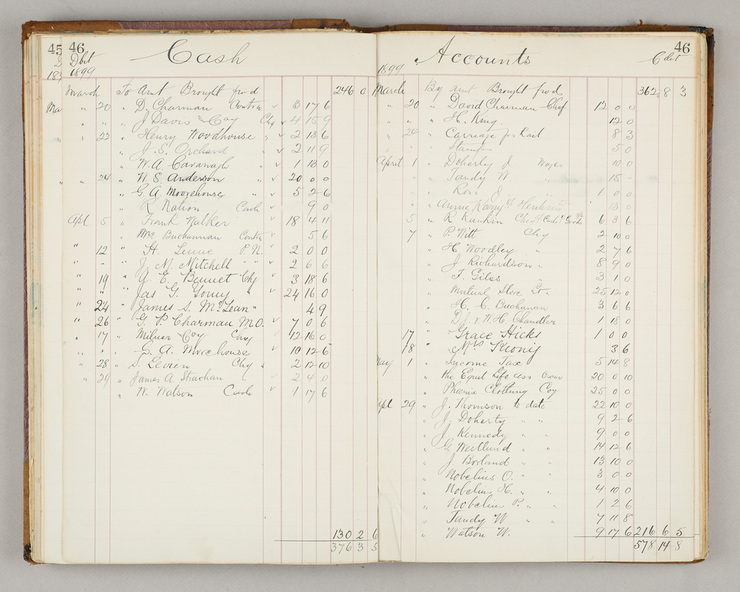 45 46 Cash
Dbt
1899
March To Amt Brought fwd 246 0
20 " D Charman Contra 3 17 6
" J Davis Coy Chq 4 15 9
22 " Henry Woodhouse " 2 13 6
" J. S. Orchard 2 11 9
" W. A. Cavanagh 1 13 0
24 " W. S. Anderson 20 0 0
" G A Moorehouse 5 2 6
" R Nation Cash 9 0
Apl 5 " Frank Walker 18 4 11
" Wm Buchannan Contra 5 6
12 " H. P.N. 2 0 0
" J M Mitchell " 2 6 6
19 " G. E. Bennet Chq 3 18 6
" " Jas G. 24 16 0
24 " James S. McLean " 4 9
26 " G. P. Charman M.O. 7 0 6
17 " Milner Coy Cash 12 16 0
" " G. A. Moorehouse 10 12 6
28 " S. Levien Chq 2 12 10
29 " James A Strachan 2 4 0
" W. Watson Cash 1 17 6
130 2 6
376 3 5
Accounts 46
1899 Cdet
March By amt Brought fwd 362 8 3
20 " David Charman Chq 12 0 0
" H. King 12 0
24 " Carriage p. Rail 8 3
" Stamps 5 0
April 1 " Doherty J Wages 10 0
" Tandy W " 15
" J 1 0 0
" Annie
5 " R Rankin 6 3 6
7 " P Witt Chq 2 10 0
" H Woodley 2 7 6
" J Richardson 8 9 0
" T. Giles 3 1 0
" Mutual Store Co. 25 12 0
" H. C. Buchanan 3 6 6
" J & W. H. Chandler 1 13 0
17 " Grace Hicks 1 0 0
18 " 3 6
May 1 " Income Tax 5 14 8
" the Equit Life 20 0 10
" Clothing Coy 25 0 0
Apl 29 " J. Thomson to date 22 10 0
" J Doherty " " 9 2 6
" J Kennedy " " 9 0 0
" G Westlund " " 14 12 6
" J Borland " " 13 10 0
" Nobelius O. " " 3 0 0
" Nobelius H. " " 4 10 0
" Nobelius P. " " 1 2 6
" Tandy W " " 7 11 8
" Watson W. 9 17 6 216 6 5
578 14 8